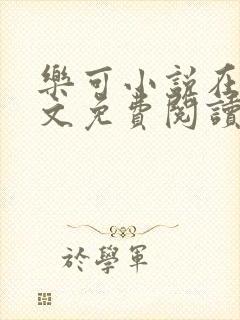 樂可小說在
文免費閱讀
於學軍